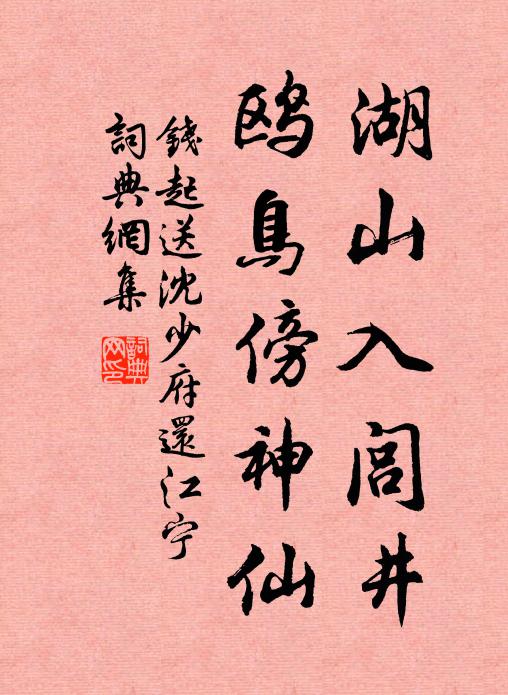 湖山入閭井
鷗鳥傍神仙
錢起送沈少府還江宁
詞典網集
詞典网印